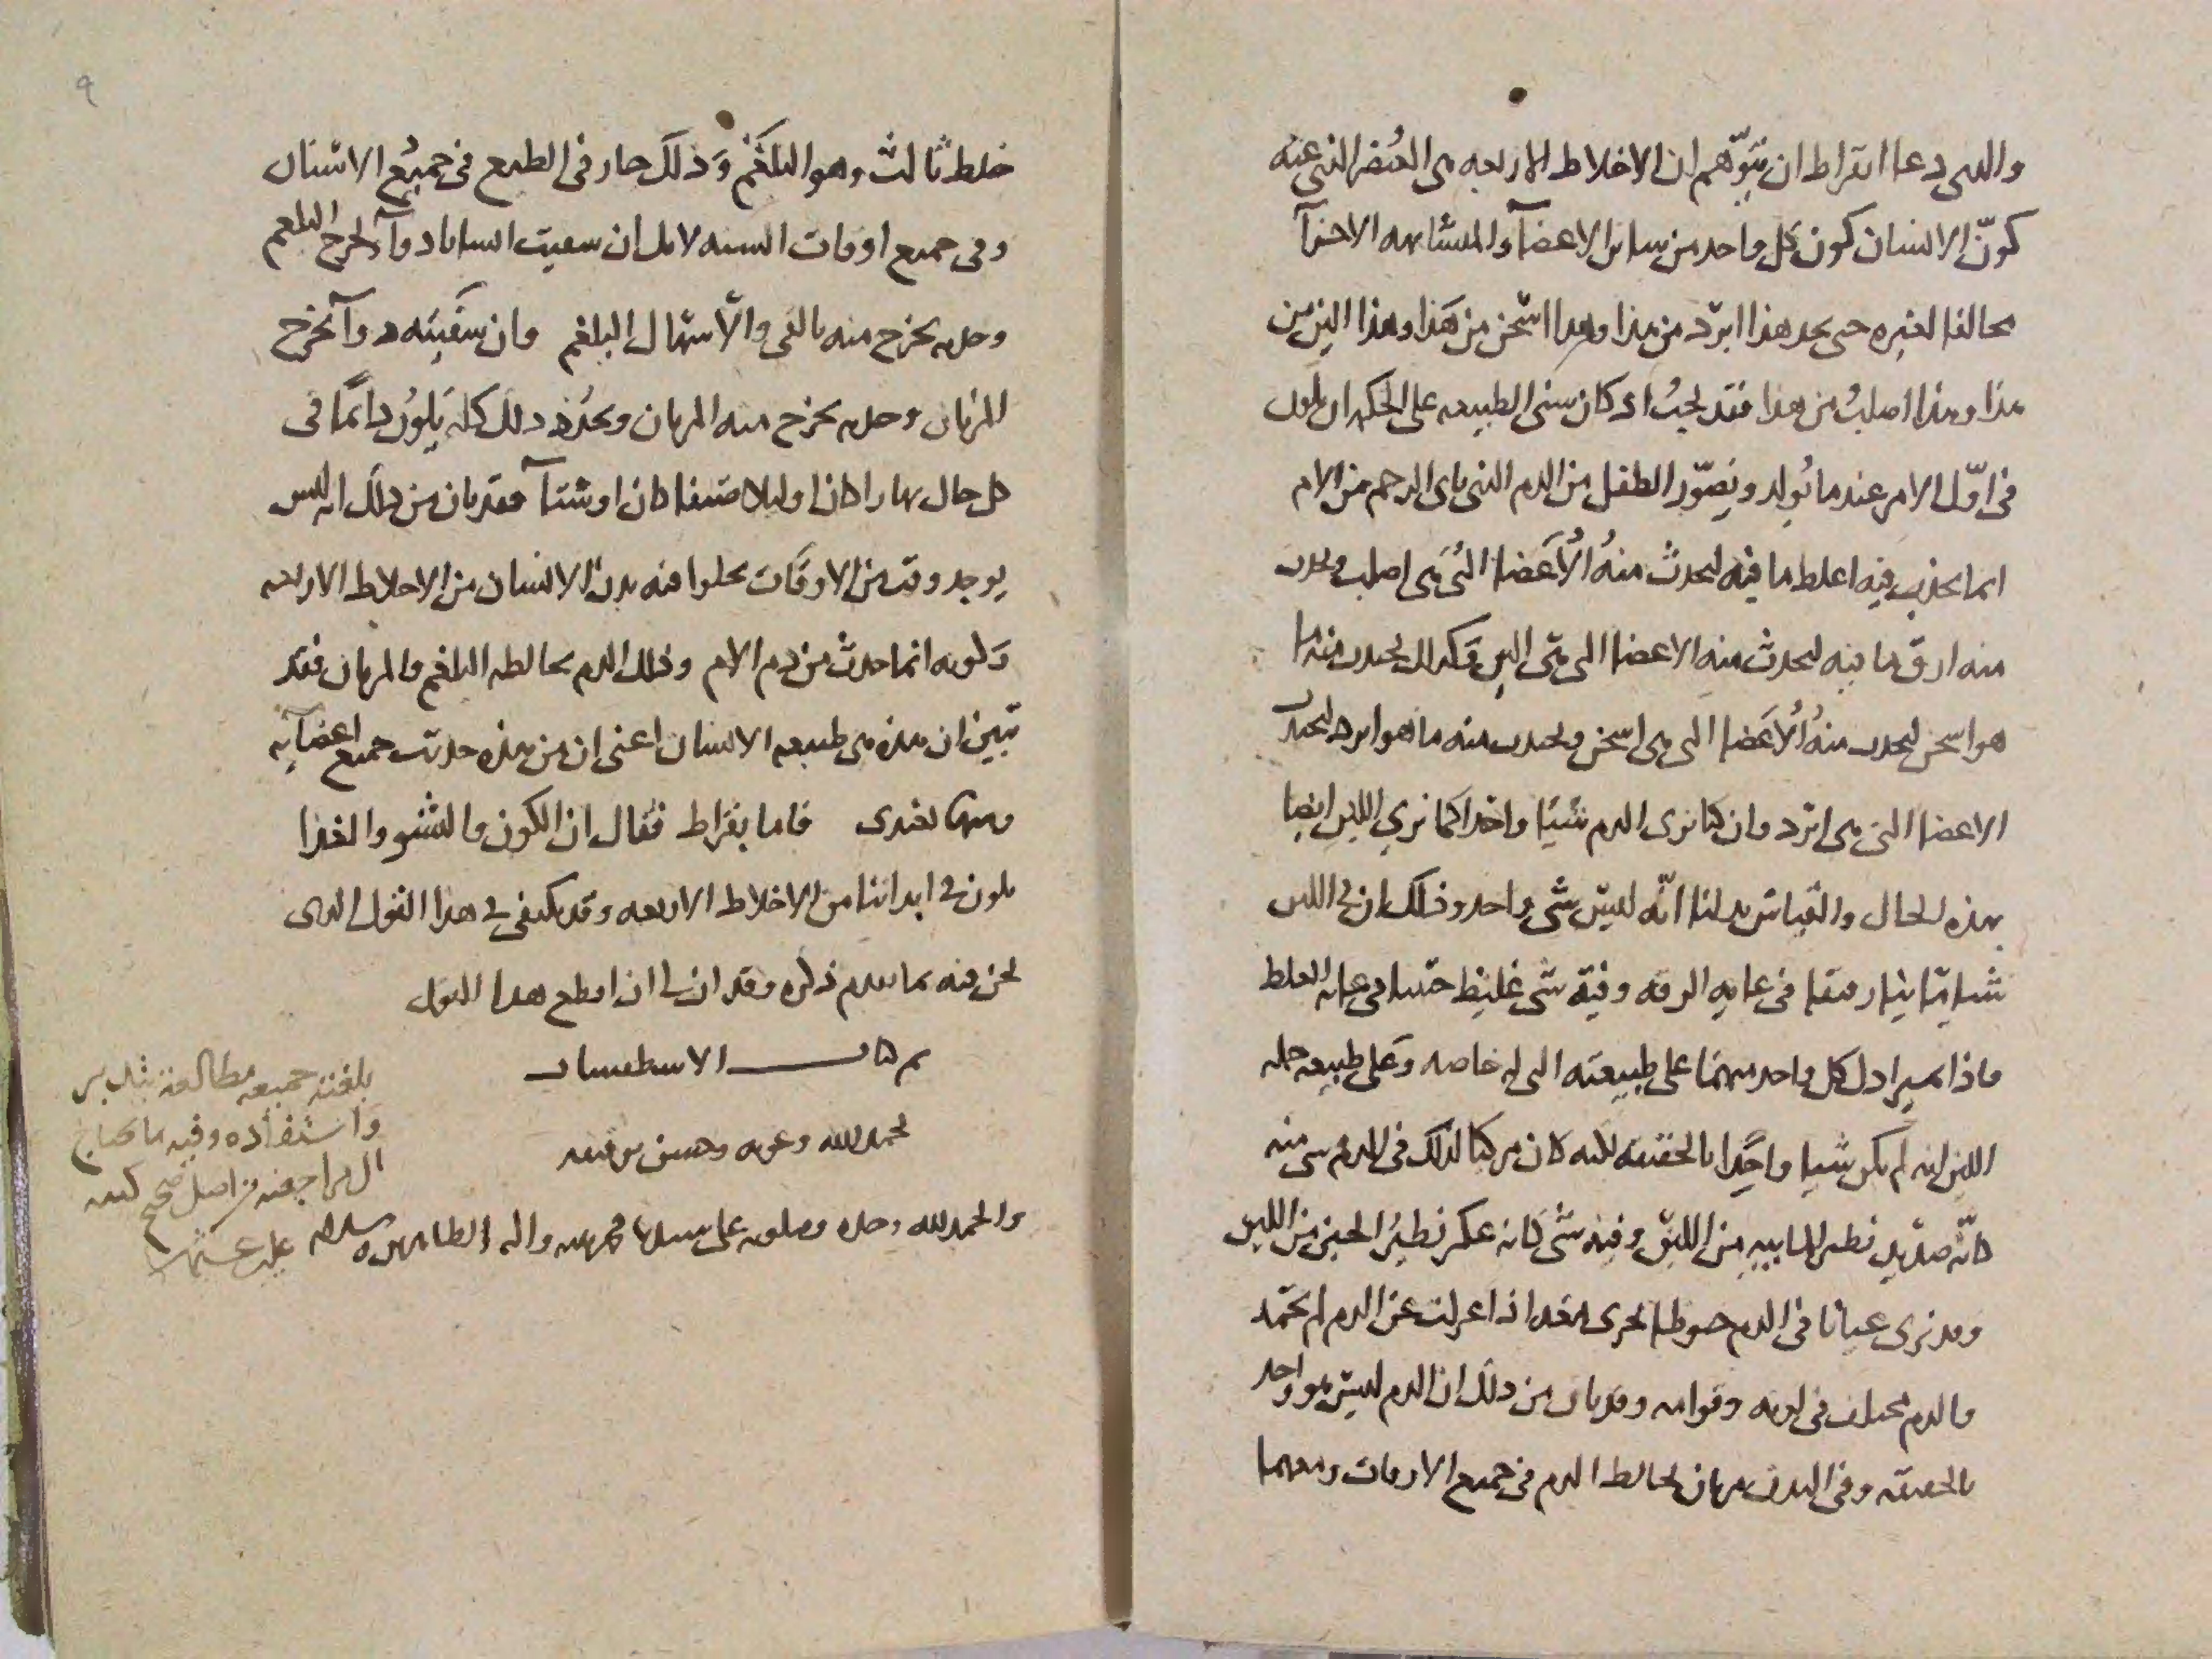 والدى دعا ابقراط ان يتوهم ان الاخلاط الاربعه هى العنصر الذى عنه
كون الانسان كون كل واحد من ساير الاعضآ والمتشابهه الاجزآ
مخالفا لغيره حتى تجد هذا ابرد من هذا وهدا اسخن من هذا وهذا الين من
هذا وهذا اصلب من هدا فقد يجب اذ كان سنى الطبيعه على الحكمه ان يكون
فى اول الامر عندما يولد ويصور الطفل من الدم الذى ياتى الرحم من الام
انما يجذب فيه اغلظ ما فيه ليحدث منه الاعضا التى هى اصلب ويجذب
منه ارق ما فيه ليحدث منه الاعضا التى هى الين وكدلك يجدب منه ما
هو اسخن ليحدث منه الاعضا التى هى اسخن ويجدب منه ما هو ابرد ليحدث
الاعضا التى هى ابرد وان كنا نرى الدم شيئا واحدا كما نرى اللبن ايضا
بهذه الحال والقياس يدلنا انه ليس شى واحد وذلك ان فى اللبن
شيا مائيا رقيقا فى غايه الرقه وفيه شى غليظ جبنيا فى غايه الغلظ
فاذا تميزا دل كل واحد منهما على طبيعته التى له خاصه وعلى طبيعه جمله
اللبن انه لم يكن شيا واحدا بالحقيقه لكنه كان مركبا كذلك فى الدم شى منه
كانه صديد نظير المائيه من اللبن وفيه شى كانه عكر نظير الجبن من اللبن
وقد نرى عيانا فى الدم خيوطا تجرى فيه اذا عزلت عن الدم لم يجمد
والدم مختلف فى لونه وقوامه وقد بان من ذلك ان الدم ليس هو واحد
بالحقيقه وفى البدن مرتان تخالط الدم فى جميع الاوقات ومعهما
خلط ثالث وهو البلغم وذلك جار فى الطبع فى جميع الاسنان
وفى جميع اوقات السنه لانك ان سقيت انسانا دوآ يخرج البلغم
وجدته يخرج منه بالقى والاسهال البلغم وان سقيته دوآ يخرج
المرتان وجدته يخرج منه المرتان وتجد ذلك كله يكون دائما فى
كل حال نهارا كان او ليلا صيفا كان او شتآ فقد بان من ذلك انه ليس
يوجد وقت من الاوقات يخلوا فيه بدن الانسان من الاخلاط الاربعه
وكونه انما حدث من دم الام وذلك الدم يخالطه البلغم والمرتان فقد
تبين ان هذه هى طبيعه الانسان اعنى ان من هذه حدثت جميع اعضآئه
ومنها تغتدى فاما بقراط فقال ان الكون والنشو والغذا
يكون فى ابداننا من الاخلاط الاربعه وقد يكتفى فى هذا القول الدى
نحن فيه بما تقدم ذكره وقد ان لى ان اقطع هدا القول
تم كتاب الاسطقسات
بحمد الله وعونه وحسن توفيقه
والحمد لله وحده وصلوته على سيدنا محمد نبيه واله الطاهرين وسلامه
بلغته جميعه مطالعة بتدبر
واستفاده وفيه ما يحتاج
الى مراجعته من اصل صحيح كتبه